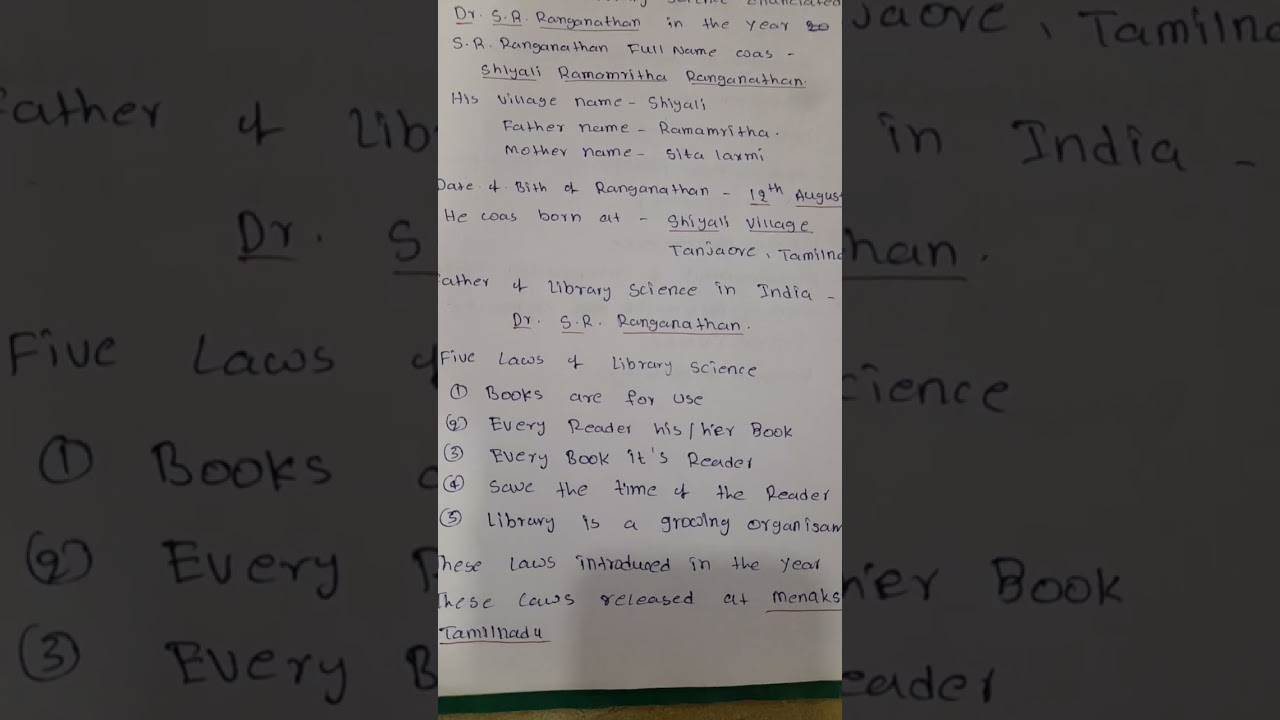 Dr. S.R. Ranganathan in the year 20
S.R. Ranganathan Full Name was -
Shiyali Ramamritha Ranganathan.
His village name - Shiyali
Father name - Ramamritha.
Mother name - Sita laxmi
Date of Bith of Ranganathan - 12th Augus
He was born at - Shiyali village
Tanjaore, Tamilna
ather of Library science in India -
Dr. S.R. Ranganathan.
Five Laws of Library science
① Books are for use
② Every Reader his/her Book
③ Every Book it's Reader
④ Save the time of the Reader
⑤ Library is a growing organisam
hese Laws introduced in the year
These Laws released at menaks
Tamilnadu